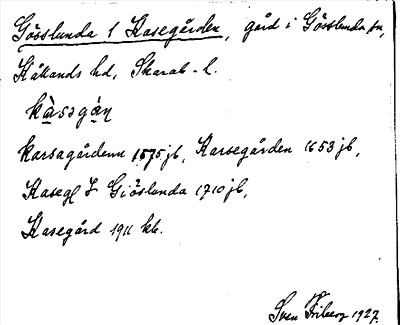 Gösslunda 1 Kasegården, gård i Gösslunda sn,
Kållands hd, Skarab. l.
kàsəgàṇ
Karsagårdenn 1575 jb, Karsegården 1653 jb,
Kaseg I Giöslunda 1710 jb,
Kasegård 1911 kb.
Sven Friberg 1927.